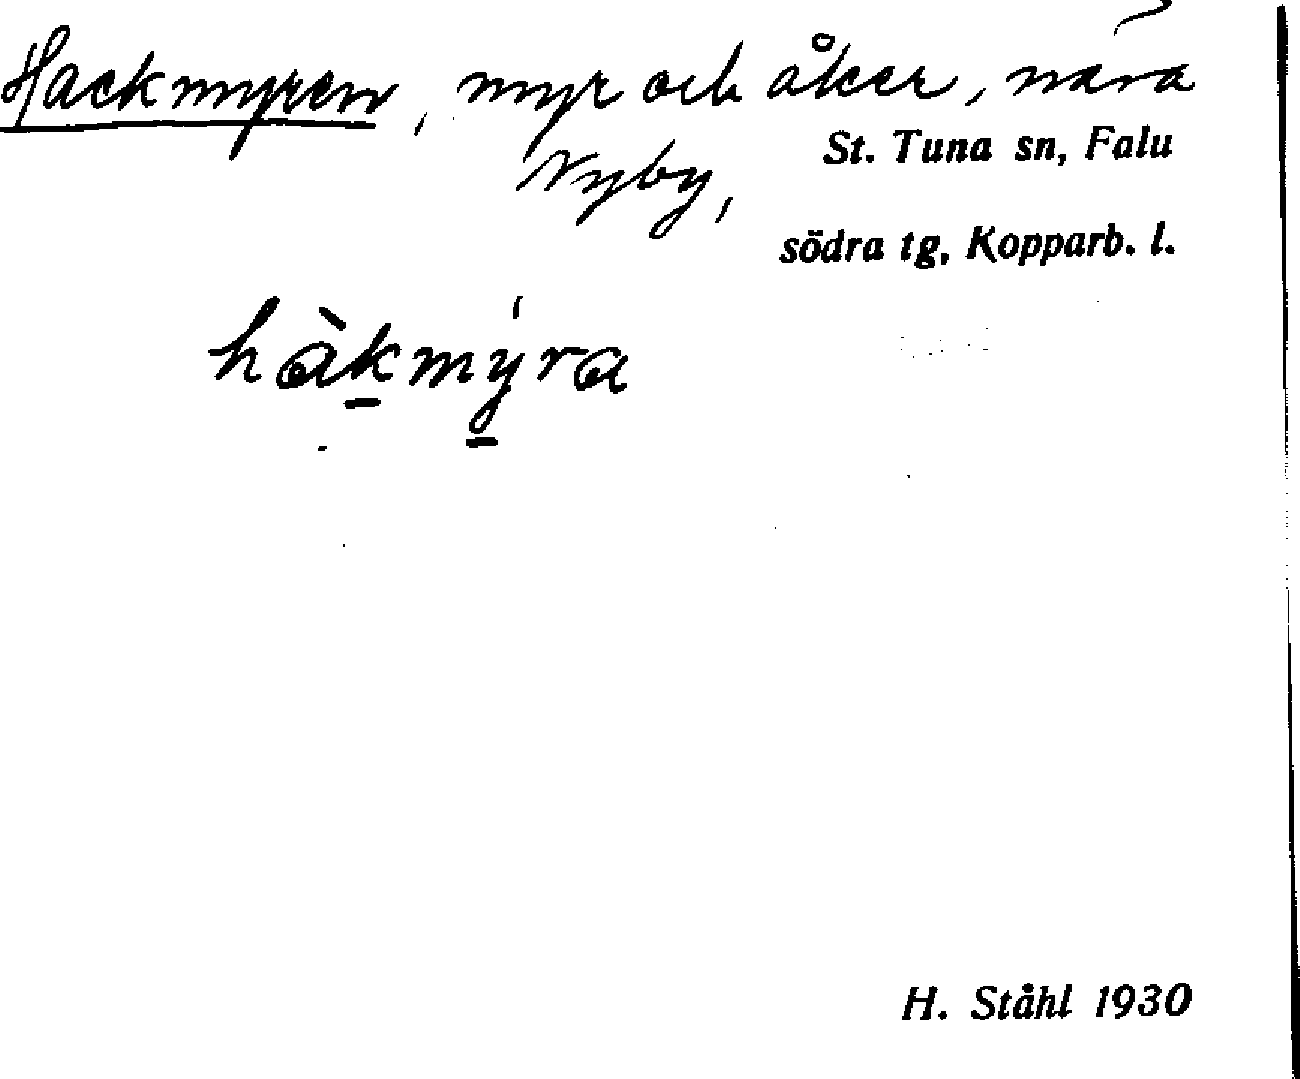 Hackmyren, myr och åker, nära
St. Tuna sn, Falu
Nyby,
södra tg, Kopparb. l.
hàkmýra
H. Ståhl 1930